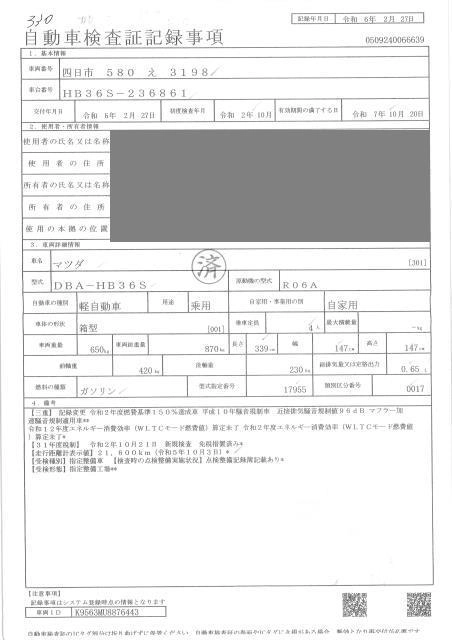 320
記録年月日 令和 6年 2月 27日
自動車検査証記録事項
0509240066639
1. 基本情報
車両番号 四日市 580 え 3198
車台番号 HB36S-236861
交付年月日 令和 6年 2月 27日 初度検査年月 令和 2年 10月 有効期間の満了する日 令和 7年 10月 20日
2. 使用者・所有者情報
使用者の氏名又は名称
使用者の住所
所有者の氏名又は名称
所有者の住所
使用の本拠の位置
3. 車両詳細情報
車名 マツダ [301]
済
型式 DBA-HB36S 原動機の型式 R06A
自動車の種別 軽自動車 用途 乗用 自家用・事業用の別 自家用
車体の形状 箱型 [001] 乗車定員 4人 最大積載量 -kg
車両重量 650kg 車両総重量 870kg 長さ 339cm 幅 147cm 高さ 147cm
前軸重 420kg 後軸重 230kg 総排気量又は定格出力 0.65 L
燃料の種類 ガソリン 型式指定番号 17955 類別区分番号 0017
4. 備考
【三重】 記録変更 令和2年度燃費基準150%達成車 平成10年騒音規制車 近接排気騒音規制値96dB マフラー加
速騒音規制適用車**
令和12年度エネルギー消費効率(WLTCモード燃費値)算定未了 令和2年度エネルギー消費効率(WLTCモード燃費値
)算定未了*
【31年度税制】 令和2年10月21日 新規検査 免税措置済み*
【走行距離計表示値】21,600km(令和5年10月3日)*
【受検種別】指定整備車 【検査時の点検整備実施状況】点検整備記録簿記載あり*
【受検形態】指定整備工場**
【注意事項】
記録事項はシステム登録時点の情報となります
車両ID K9563MU8876443